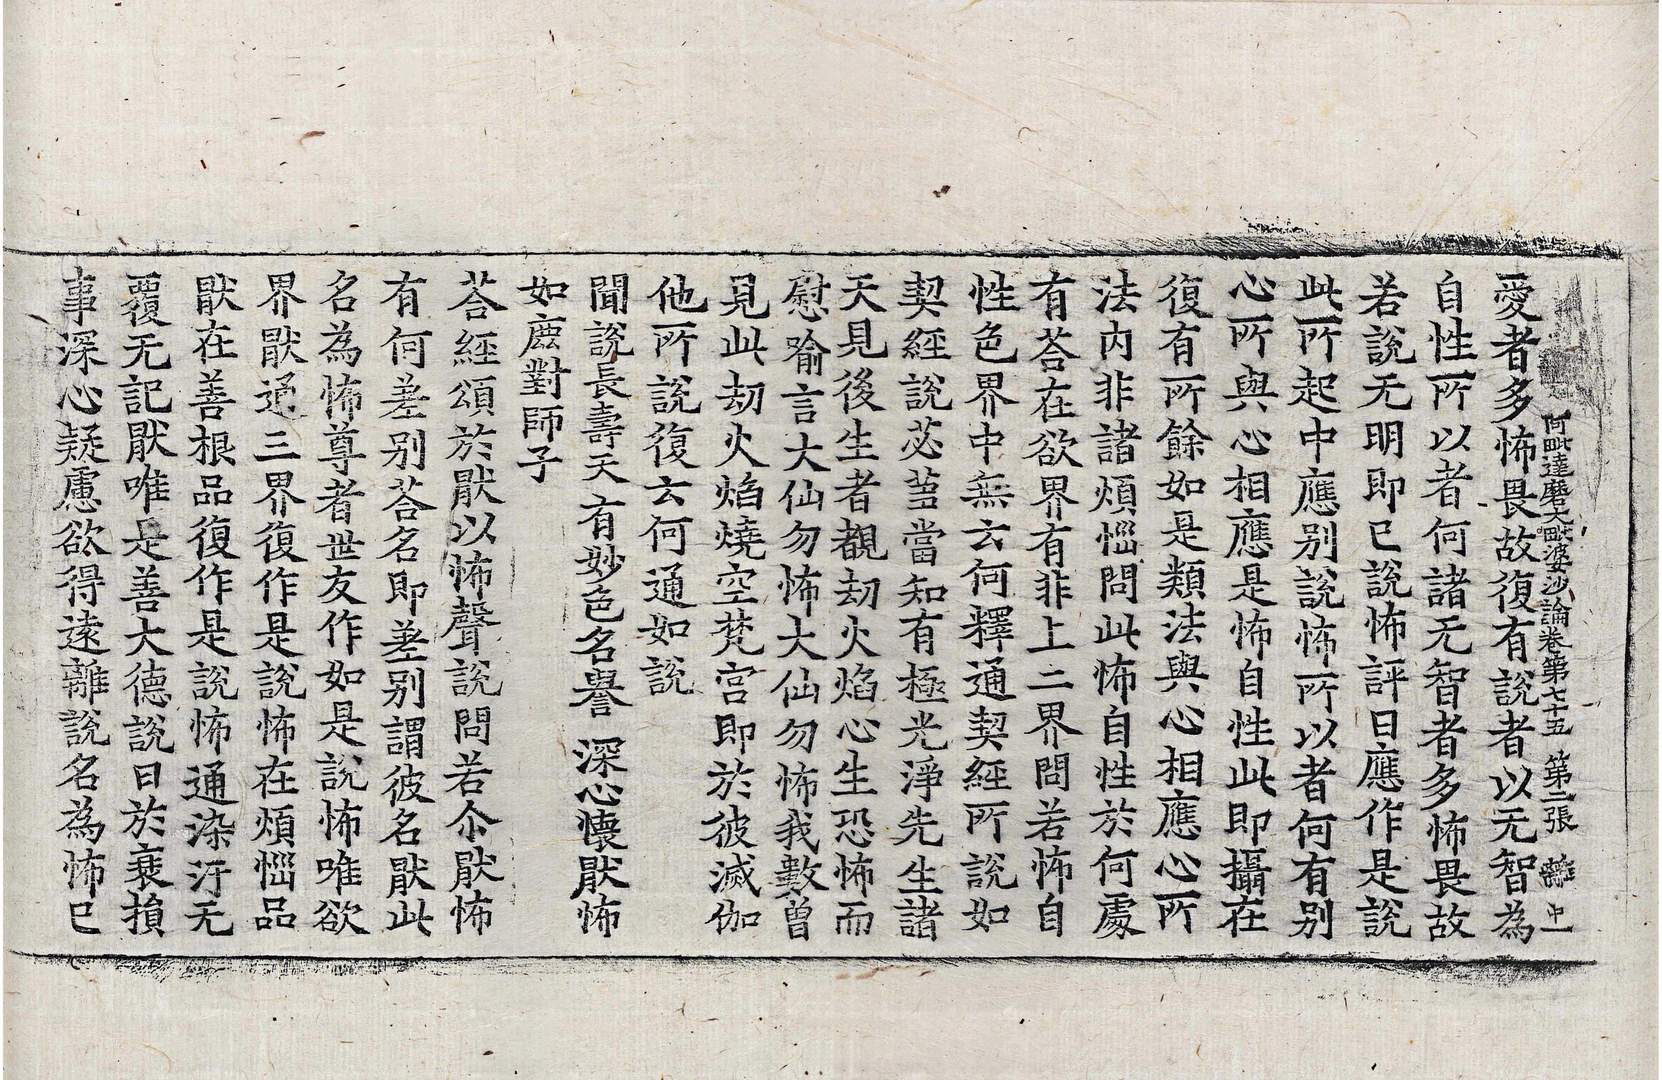 阿毗達磨大毗婆沙論卷第七十五 第二張
愛者多怖畏故復有說者以无智為
自性所以者何諸无智者多怖畏故
若說无明即已說怖評曰應作是說
此所起中應別說怖所以者何有別
心所與心相應是怖自性此即攝在
復有所餘如是類法與心相應心所
法內非諸煩惱問此怖自性於何處
有荅在欲界有非上二界問若怖自
性色界中無云何釋通契經所說如
契經說苾芻當知有極光淨先生諸
天見後生者覩劫火焰心生恐怖而
慰喻言大仙勿怖大仙勿怖我數曾
見此劫火焰燒空梵宮即於彼滅伽
他所說復云何通如說
聞說長壽天 有妙色名譽 深心懷猒怖
如鹿對師子
荅經頌於猒以怖聲說問若尒猒怖
有何差別荅名即差別謂彼名猒此
名為怖尊者世友作如是說怖唯欲
界猒通三界復作是說怖在煩惱品
猒在善根品復作是說怖通染汙无
覆无記猒唯是善大德說曰於衰損
事深心疑慮欲得遠離說名為怖已